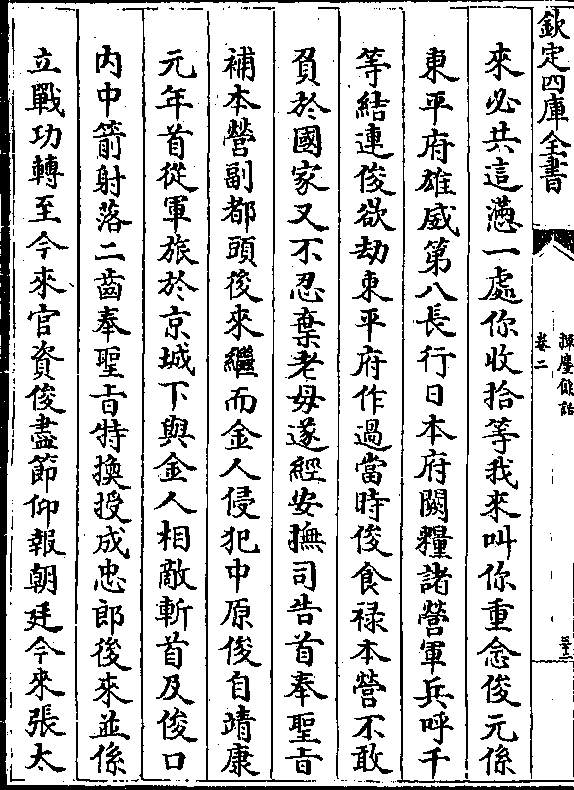 欽定四庫全書
揮麈餘話
卷二
三十二
來必共這懣一處你收拾等我來叫你重念俊元係
東平府雄威第八長行日本府闕糧諸營軍兵呼千
等結連俊欲劫東平府作過當時俊食祿本營不敢
負於國家又不忍棄老母遂經安撫司告首奉聖旨
補本營副都頭後來繼而金人侵犯中原俊自靖康
元年首從軍旅於京城下與金人相敵斬首及俊口
内中箭射落二齒奉聖旨特換授成忠郎後來並係
立戰功轉至今來官資俊盡節仰報朝廷今來張太